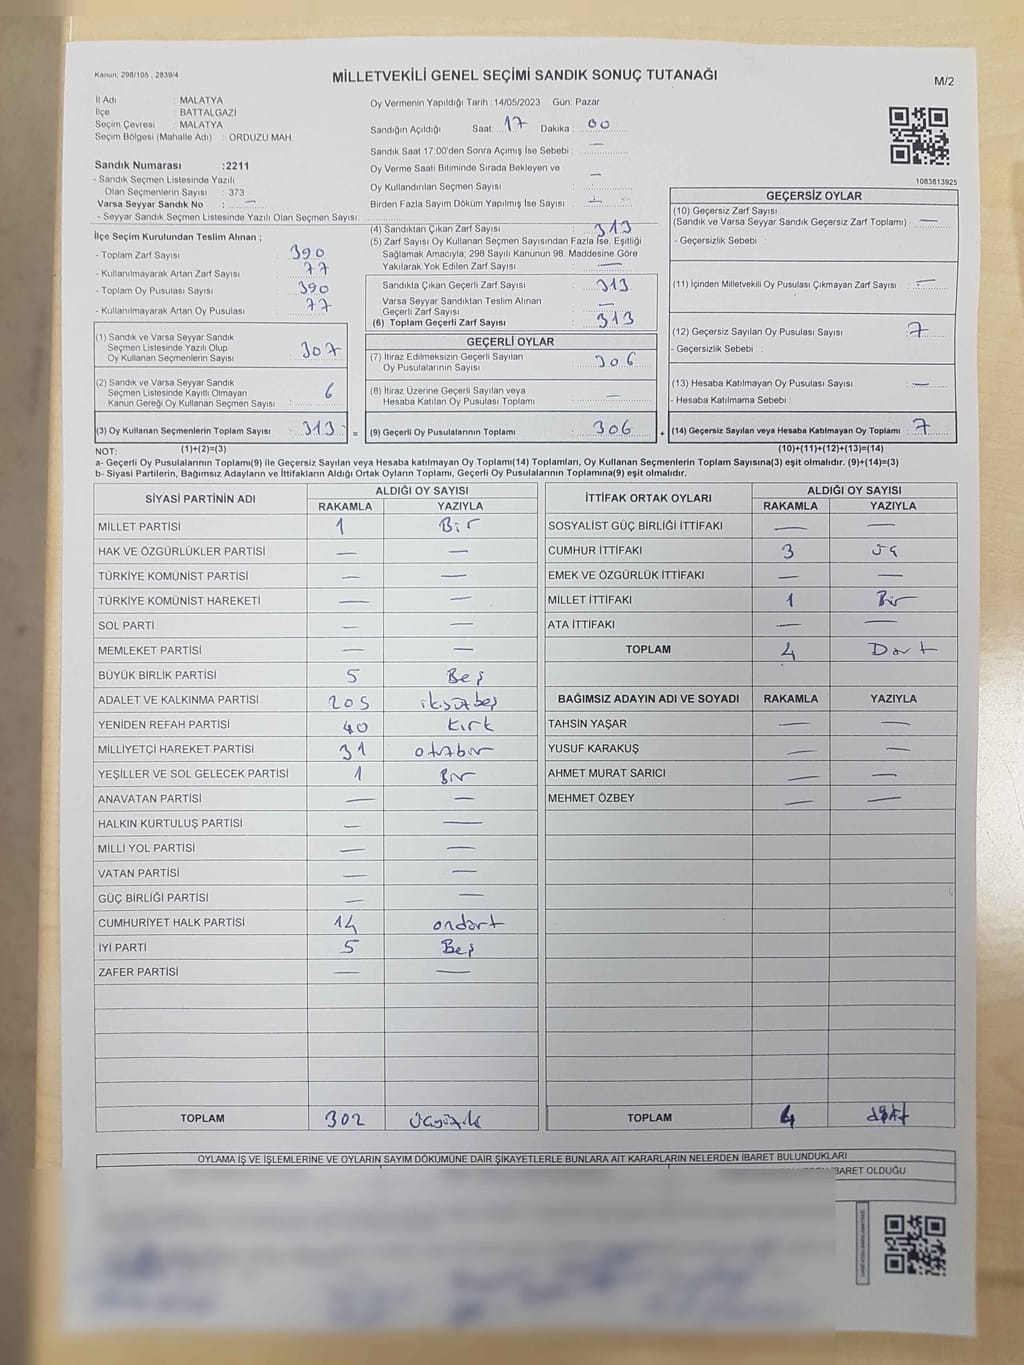 Kanun; 298/105 ; 2839/4
MİLLETVEKİLİ GENEL SEÇİMİ SANDIK SONUÇ TUTANAĞI
M/2
İl Adı : MALATYA
İlçe : BATTALGAZİ
Seçim Çevresi : MALATYA
Seçim Bölgesi (Mahalle Adı) : ORDUZU MAH
Oy Vermenin Yapıldığı Tarih :14/05/2023 Gün: Pazar
Sandığın Açıldığı Saat: 17 Dakika : 00
Sandık Saat 17:00'den Sonra Açımış İse Sebebi : —
Oy Verme Saati Bitiminde Sırada Bekleyen ve
Oy Kullandırılan Seçmen Sayısı : —
Birden Fazla Sayım Döküm Yapılmış İse Sayısı : —
1083813925
Sandık Numarası :2211
- Sandık Seçmen Listesinde Yazılı
Olan Seçmenlerin Sayısı : 373
Varsa Seyyar Sandık No : —
- Seyyar Sandık Seçmen Listesinde Yazılı Olan Seçmen Sayısı:
İlçe Seçim Kurulundan Teslim Alınan ;
- Toplam Zarf Sayısı : 390
- Kullanılmayarak Artan Zarf Sayısı : 77
- Toplam Oy Pusulası Sayısı : 390
- Kullanılmayarak Artan Oy Pusulası : 77
(1) Sandık ve Varsa Seyyar Sandık
Seçmen Listesinde Yazılı Olup
Oy Kullanan Seçmenlerin Sayısı : 307
(2) Sandık ve Varsa Seyyar Sandık
Seçmen Listesinde Kayıtlı Olmayan
Kanun Gereği Oy Kullanan Seçmen Sayısı : 6
(3) Oy Kullanan Seçmenlerin Toplam Sayısı : 313 =
(4) Sandıktan Çıkan Zarf Sayısı : 313
(5) Zarf Sayısı Oy Kullanan Seçmen Sayısından Fazla İse, Eşitliği
Sağlamak Amacıyla; 298 Sayılı Kanunun 98. Maddesine Göre
Yakılarak Yok Edilen Zarf Sayısı : —
Sandıkta Çıkan Geçerli Zarf Sayısı : 313
Varsa Seyyar Sandıktan Teslim Alınan
Geçerli Zarf Sayısı : —
(6) Toplam Geçerli Zarf Sayısı : 313
GEÇERLİ OYLAR
(7) İtiraz Edilmeksizin Geçerli Sayılan
Oy Pusulalarının Sayısı : 306
(8) İtiraz Üzerine Geçerli Sayılan veya
Hesaba Katılan Oy Pusulası Toplamı : —
(9) Geçerli Oy Pusulalarının Toplamı : 306 +
GEÇERSİZ OYLAR
(10) Geçersiz Zarf Sayısı
(Sandık ve Varsa Seyyar Sandık Geçersiz Zarf Toplamı) : —
- Geçersizlik Sebebi :
(11) İçinden Milletvekili Oy Pusulası Çıkmayan Zarf Sayısı : —
(12) Geçersiz Sayılan Oy Pusulası Sayısı : 7
- Geçersizlik Sebebi :
(13) Hesaba Katılmayan Oy Pusulası Sayısı : —
- Hesaba Katılmama Sebebi :
(14) Geçersiz Sayılan veya Hesaba Katılmayan Oy Toplamı : 7
NOT: (1)+(2)=(3) (10)+(11)+(12)+(13)=(14)
a- Geçerli Oy Pusulalarının Toplamı(9) ile Geçersiz Sayılan veya Hesaba katılmayan Oy Toplamı(14) Toplamları, Oy Kullanan Seçmenlerin Toplam Sayısına(3) eşit olmalıdır. (9)+(14)=(3)
b- Siyasi Partilerin, Bağımsız Adayların ve İttifakların Aldığı Oyların Toplamı, Geçerli Oy Pusulalarının Toplamına(9) eşit olmalıdır.
SİYASİ PARTİNİN ADI ALDIĞI OY SAYISI
RAKAMLA YAZIYLA
MİLLET PARTİSİ 1 Bir
HAK VE ÖZGÜRLÜKLER PARTİSİ — —
TÜRKİYE KOMÜNİST PARTİSİ — —
TÜRKİYE KOMÜNİST HAREKETİ — —
SOL PARTİ — —
MEMLEKET PARTİSİ — —
BÜYÜK BİRLİK PARTİSİ 5 Beş
ADALET VE KALKINMA PARTİSİ 205 ikiyüzbeş
YENİDEN REFAH PARTİSİ 40 kırk
MİLLİYETÇİ HAREKET PARTİSİ 31 otuzbir
YEŞİLLER VE SOL GELECEK PARTİSİ 1 Bir
ANAVATAN PARTİSİ — —
HALKIN KURTULUŞ PARTİSİ — —
MİLLİ YOL PARTİSİ — —
VATAN PARTİSİ — —
GÜÇ BİRLİĞİ PARTİSİ — —
CUMHURİYET HALK PARTİSİ 14 ondört
İYİ PARTİ 5 Beş
ZAFER PARTİSİ — —
TOPLAM 302 üçyüziki
İTTİFAK ORTAK OYLARI ALDIĞI OY SAYISI
RAKAMLA YAZIYLA
SOSYALİST GÜÇ BİRLİĞİ İTTİFAKI — —
CUMHUR İTTİFAKI 3 üç
EMEK VE ÖZGÜRLÜK İTTİFAKI — —
MİLLET İTTİFAKI 1 Bir
ATA İTTİFAKI — —
TOPLAM 4 Dört
BAĞIMSIZ ADAYIN ADI VE SOYADI RAKAMLA YAZIYLA
TAHSİN YAŞAR — —
YUSUF KARAKUŞ — —
AHMET MURAT SARICI — —
MEHMET ÖZBEY — —
TOPLAM 4 dört
OYLAMA İŞ VE İŞLEMLERİNE VE OYLARIN SAYIM DÖKÜMÜNE DAİR ŞİKAYETLERLE BUNLARA AİT KARARLARIN NELERDEN İBARET BULUNDUKLARI
İBARET OLDUĞU